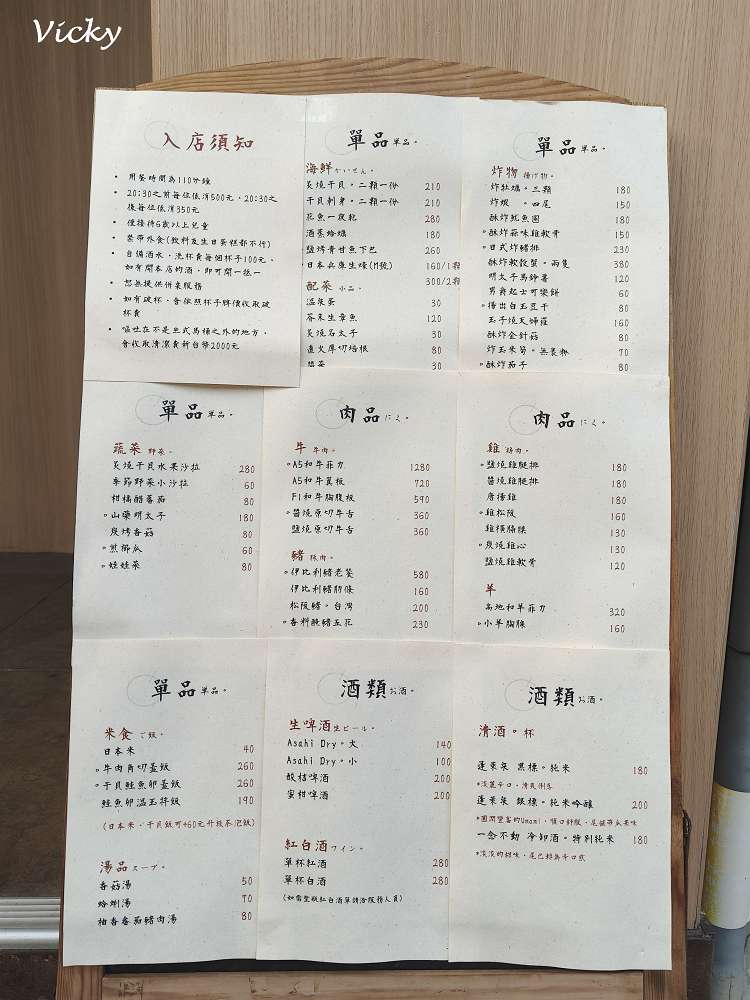 Vicky
入店須知
• 用餐時間為110分鐘
• 20:30之前每位低消500元,20:30之
後每位低消350元
• 僅接待6歲以上兒童
• 禁帶外食(飲料及生日蛋糕都不行)
• 自備酒水,洗杯費每個杯子100元,
如有開本店的酒,即可開一抵一
• 恕無提供併桌服務
• 如有破杯,會依照杯子牌價收取破
杯費
• 嘔吐在不是坐式馬桶之外的地方,
會收取清潔費新台幣2000元
單品 單品。
海鮮 かいせん。
炙燒干貝。二顆一份 210
干貝刺身。二顆一份 210
花魚一夜乾 280
酒蒸蛤蠣 180
鹽烤青甘魚下巴 260
日本兵庫生蠔(M號) 160/1顆
300/2顆
配菜 小品。
溫泉蛋 30
芥末生章魚 120
炙燒明太子 30
直火厚切培根 80
30
單品 單品。
炸物 揚げ物。
炸牡蠣。三顆 180
炸蝦 。四尾 150
酥炸魷魚圈 180
酥炸蒜味雞軟骨 150
日式炸豬排 230
酥炸軟殼蟹。兩隻 380
明太子馬鈴薯 120
男爵起士可樂餅 60
揚出白玉豆干 80
玉子燒天婦羅 160
酥炸金針菇 80
炸玉米筍。無裹粉 70
酥炸茄子 80
單品 單品。
蔬菜 野菜。
炙燒干貝水果沙拉 280
季節野菜小沙拉 60
柑橘醋番茄 80
山藥明太子 180
炭烤香菇 80
煎櫛瓜 60
娃娃菜 80
肉品 にく。
牛 牛肉。
A5和牛菲力 1280
A5和牛翼板 720
F1和牛胸腹板 590
醬燒原切牛舌 360
鹽燒原切牛舌 360
豬 豚肉。
伊比利豬老饕 580
伊比利豬肋條 160
松阪豬。台灣 200
香料醃豬五花 230
肉品 にく。
雞 鶏肉。
鹽燒雞腿排 180
醬燒雞腿排 180
唐揚雞 180
雞松阪 160
雞橫膈膜 130
炭燒雞心 130
鹽燒雞軟骨 120
羊
高地和羊菲力 320
小羊胸腺 160
單品 單品。
米食 ご飯。
日本米 40
牛肉角切蓋飯 260
干貝鮭魚卵蓋飯 260
鮭魚卵溫玉拌飯 190
(日本米、干貝飯可+60元升級茶泡飯)
湯品 スープ。
香菇湯 50
蛤蜊湯 70
柚香番茄豬肉湯 80
酒類 お酒。
生啤酒 生ビール。
Asahi Dry。大 140
Asahi Dry。小 100
酸桔啤酒 200
蜜柑啤酒 200
紅白酒 ワイン。
單杯紅酒 280
單杯白酒 280
(如需整瓶紅白酒單請洽服務人員)
酒類 お酒。
清酒。杯
蓬萊泉 黑標。純米 180
*淡麗辛口,清爽俐落
蓬萊泉 銀標。純米吟釀 200
*圓潤豐富的Umami,順口舒服,尾韻帶瓜果味
一念不動 冷卸酒。特別純米 180
*淡淡的甜味,尾巴轉為辛口感